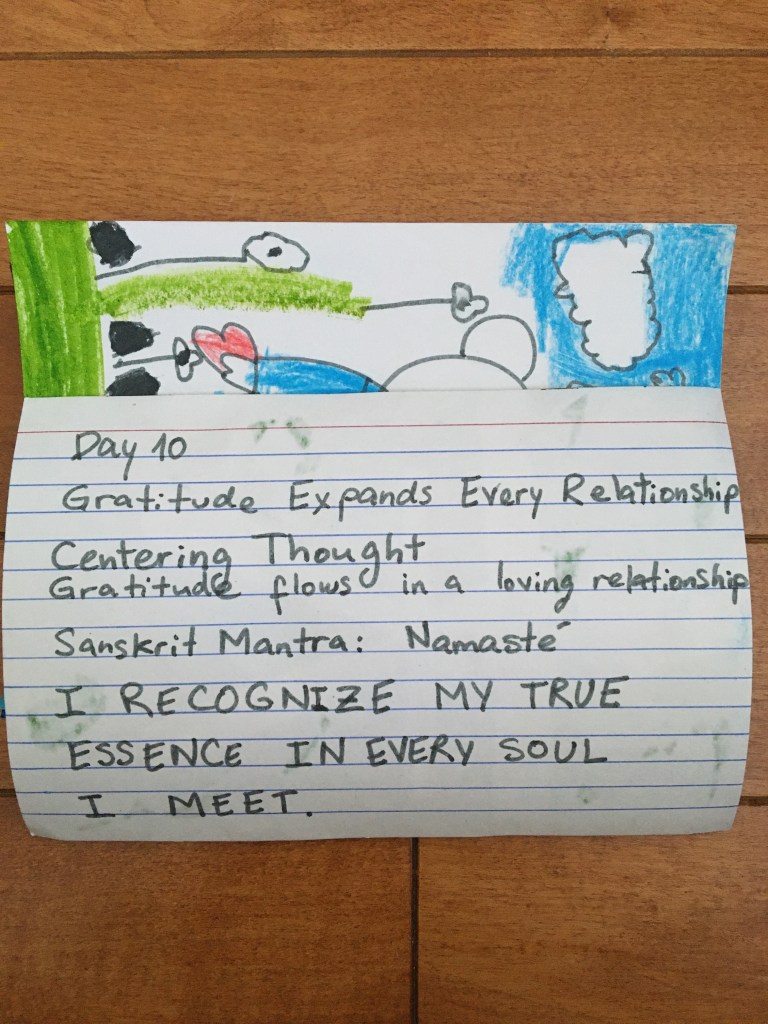 Day 10
Gratitude Expands Every Relationship
Centering Thought
Gratitude flows in a loving relationship
Sanskrit Mantra: Namasté
I RECOGNIZE MY TRUE
ESSENCE IN EVERY SOUL
I MEET.